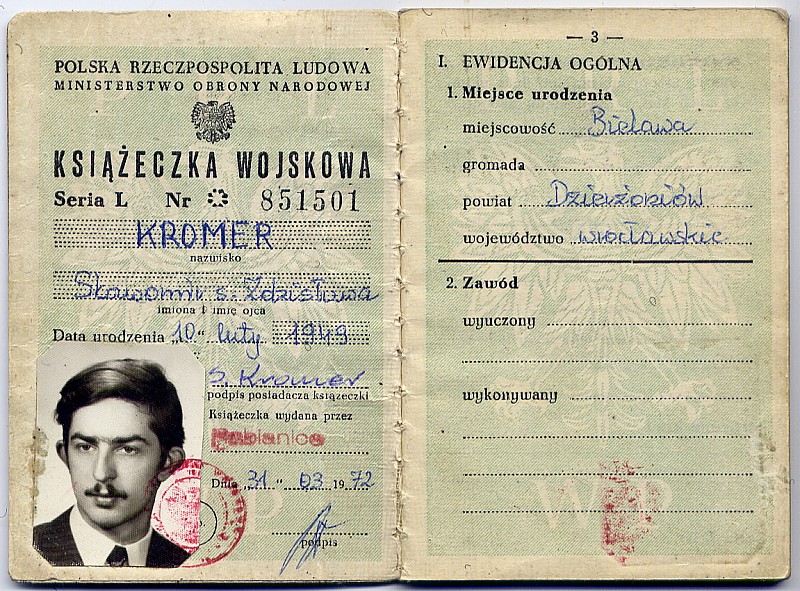 POLSKA RZECZPOSPOLITA LUDOWA
MINISTERSTWO OBRONY NARODOWEJ
KSIĄŻECZKA WOJSKOWA
Seria L Nr 851501
KROMER
nazwisko
Sławomir s. Zdzisława
imiona i imię ojca
Data urodzenia „10" luty 1949
S. Kromer
podpis posiadacza książeczki
Książeczka wydana przez
Pabianice
Dnia „31" 03 1972
podpis
— 3 —
I. EWIDENCJA OGÓLNA
1. Miejsce urodzenia
miejscowość Bielawa
gromada
powiat Dzierżoniów
województwo wrocławskie
2. Zawód
wyuczony
wykonywany